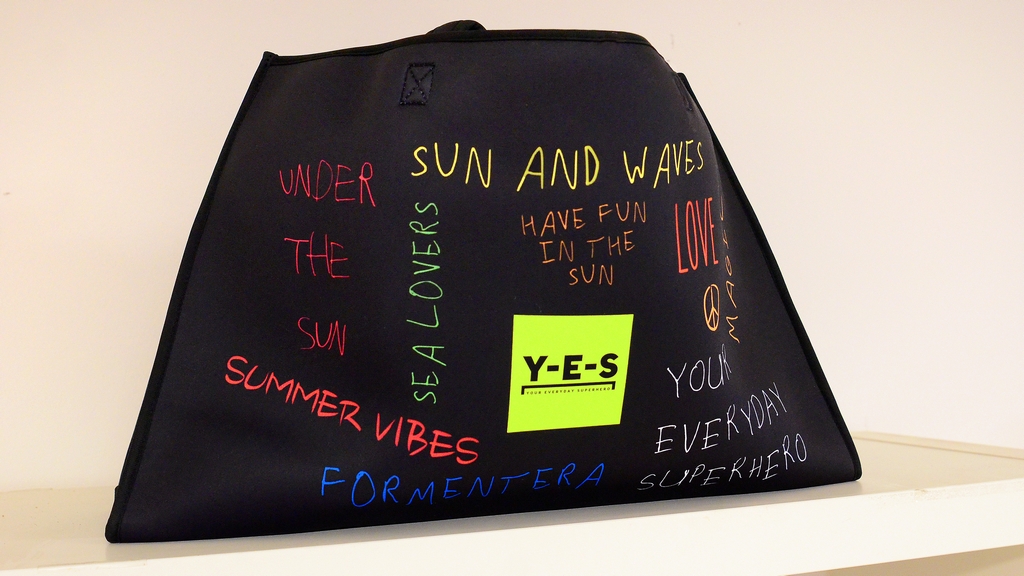 SUN AND WAVES
UNDER
THE
SUN
SEA LOVERS
HAVE FUN
IN THE
SUN
LOVE
SUMMER VIBES
Y-E-S
YOUR EVERYDAY SUPERHERO
YOUR
EVERYDAY
SUPERHERO
FORMENTERA